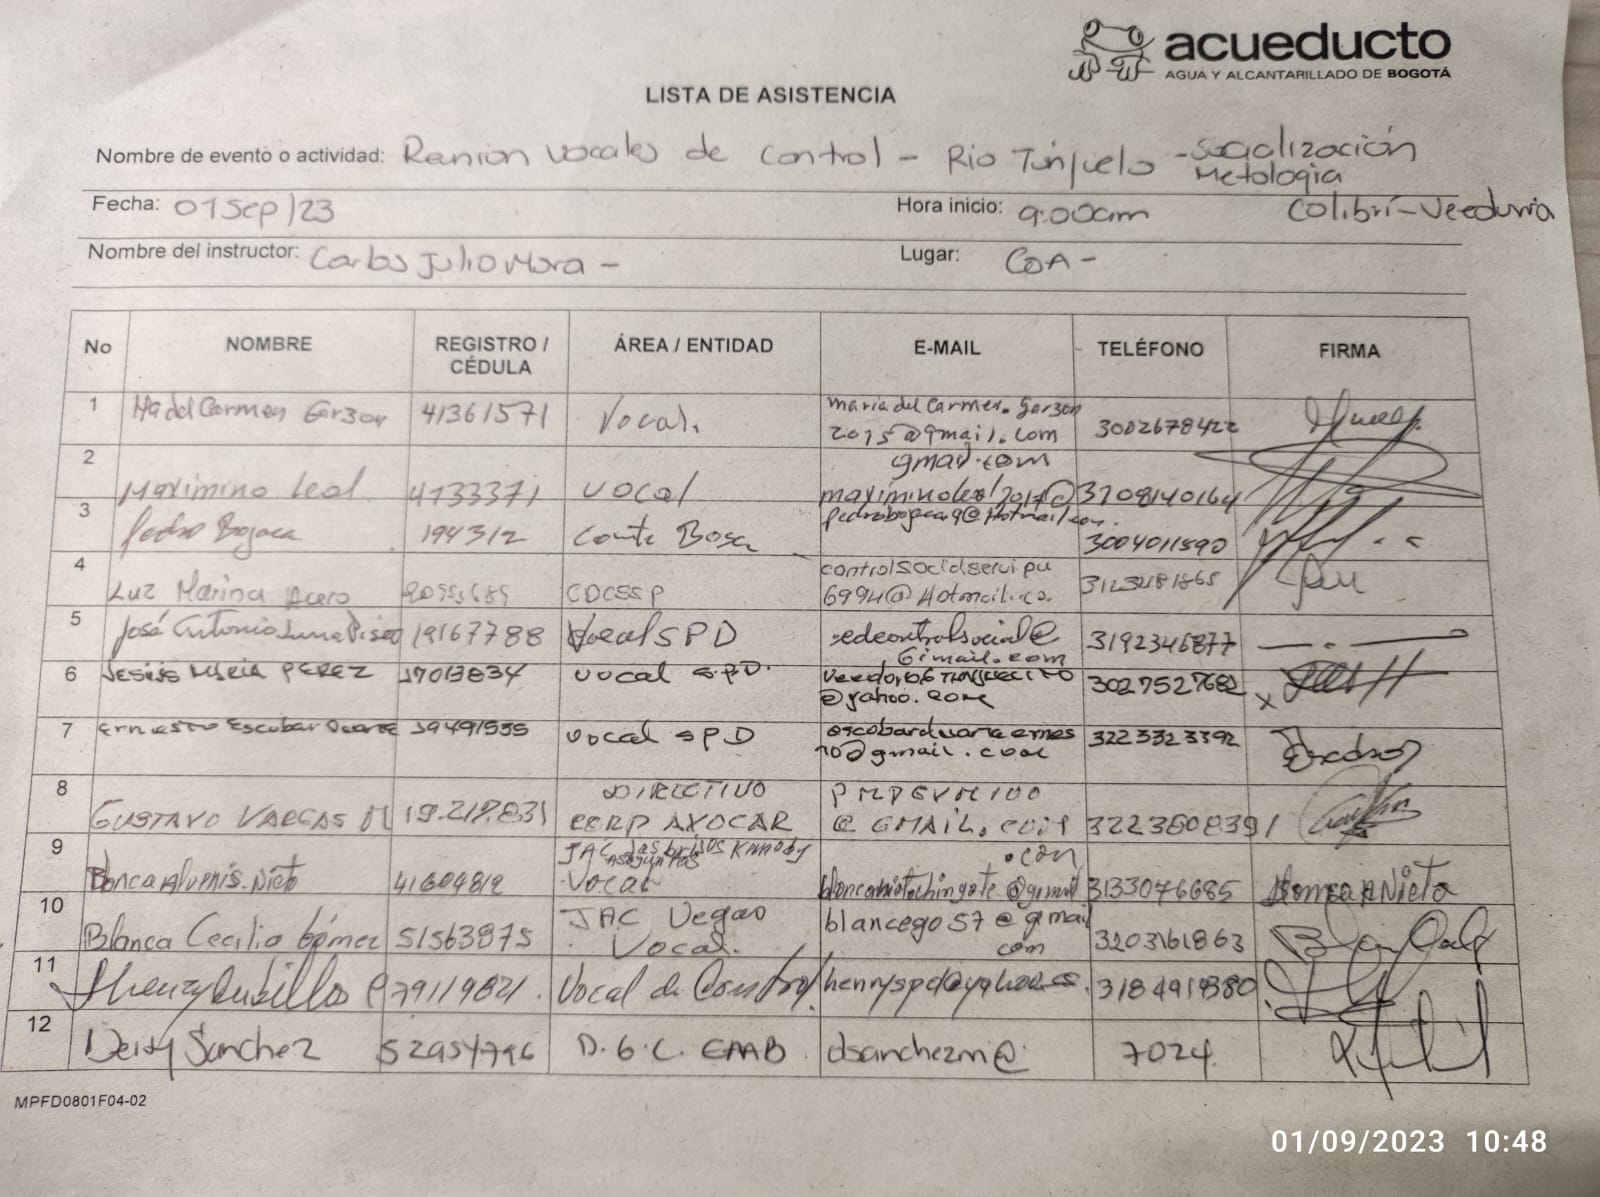 acueducto
AGUA Y ALCANTARILLADO DE BOGOTÁ
LISTA DE ASISTENCIA
Nombre de evento o actividad: Reunion vocales de control - Rio Tunjuelo - Socialización
Metologia
Colibrí-Veeduria
Fecha: 01 Sep/23 Hora inicio: 9:00am
Nombre del instructor: Carlos Julio Mora - Lugar: COA -
No NOMBRE REGISTRO / CÉDULA ÁREA / ENTIDAD E-MAIL TELÉFONO FIRMA
1 Ma del Carmen Garzon 41361571 Vocal. mariadelcarmen.garzon
2015@gmail.com 3002678422
2 Maximino Leal 4133371 vocal maximinoleal2017@ 3208140164
gmail.com
3 Pedro Bojaca 194312 Comite Bosa 3004011590
4 Luz Marina Acero CDCSSP controlsocialservipu
6994@Hotmail.co.
5 José Antonio Luna 19167788 Vocal SPD redcontrolsocial@
Gimail.com 3192346877
6 Jesús María PEREZ 17013834 vocal S.P.D.
@yahoo.com 3027527682
7 Ernesto Escobar Duarte 19491535 vocal SPD escobarduarteernes
10@gmail.com 3223323392
8 GUSTAVO VARGAS M 19.217.831 DIRECTIVO
CORP AXOCAR PMPGVM100
@GMAIL.com 3223808391
9 Blanca Alvenis. Nieto 41604812 JAC
Vocal 3133076685 Blanca A Nieto
.com
10 Blanca Cecilia Gómez 51563875 JAC Vegas
Vocal. blancego57@gmail
com 3203161863
11 Henry Cubillos P 79119821. Vocal de Control henryspd@yahoo.es. 3184919380
12 Deisy Sanchez 52954796 D.G.C. EAAB. dsanchezm@ 7024
MPFD0801F04-02
01/09/2023 10:48